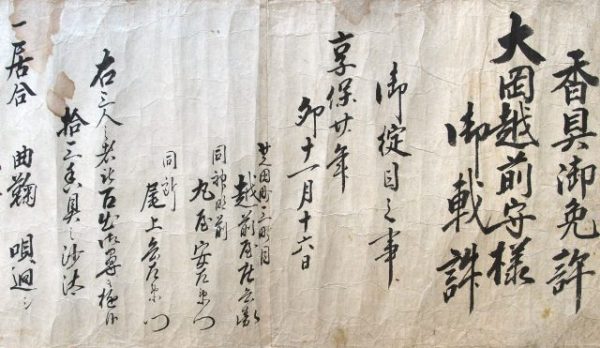 香具御免許
大岡越前守様
御載許
御掟目之事
享保廿年
卯十一月十六日
芝田町三町目
越前屋庄兵衛
同神明前
丸屋安左衛門
同所
尾上兵左衛門
右三人之者共 御尋
拾三香具之沙汰
一居合 曲鞠 唄廻シ